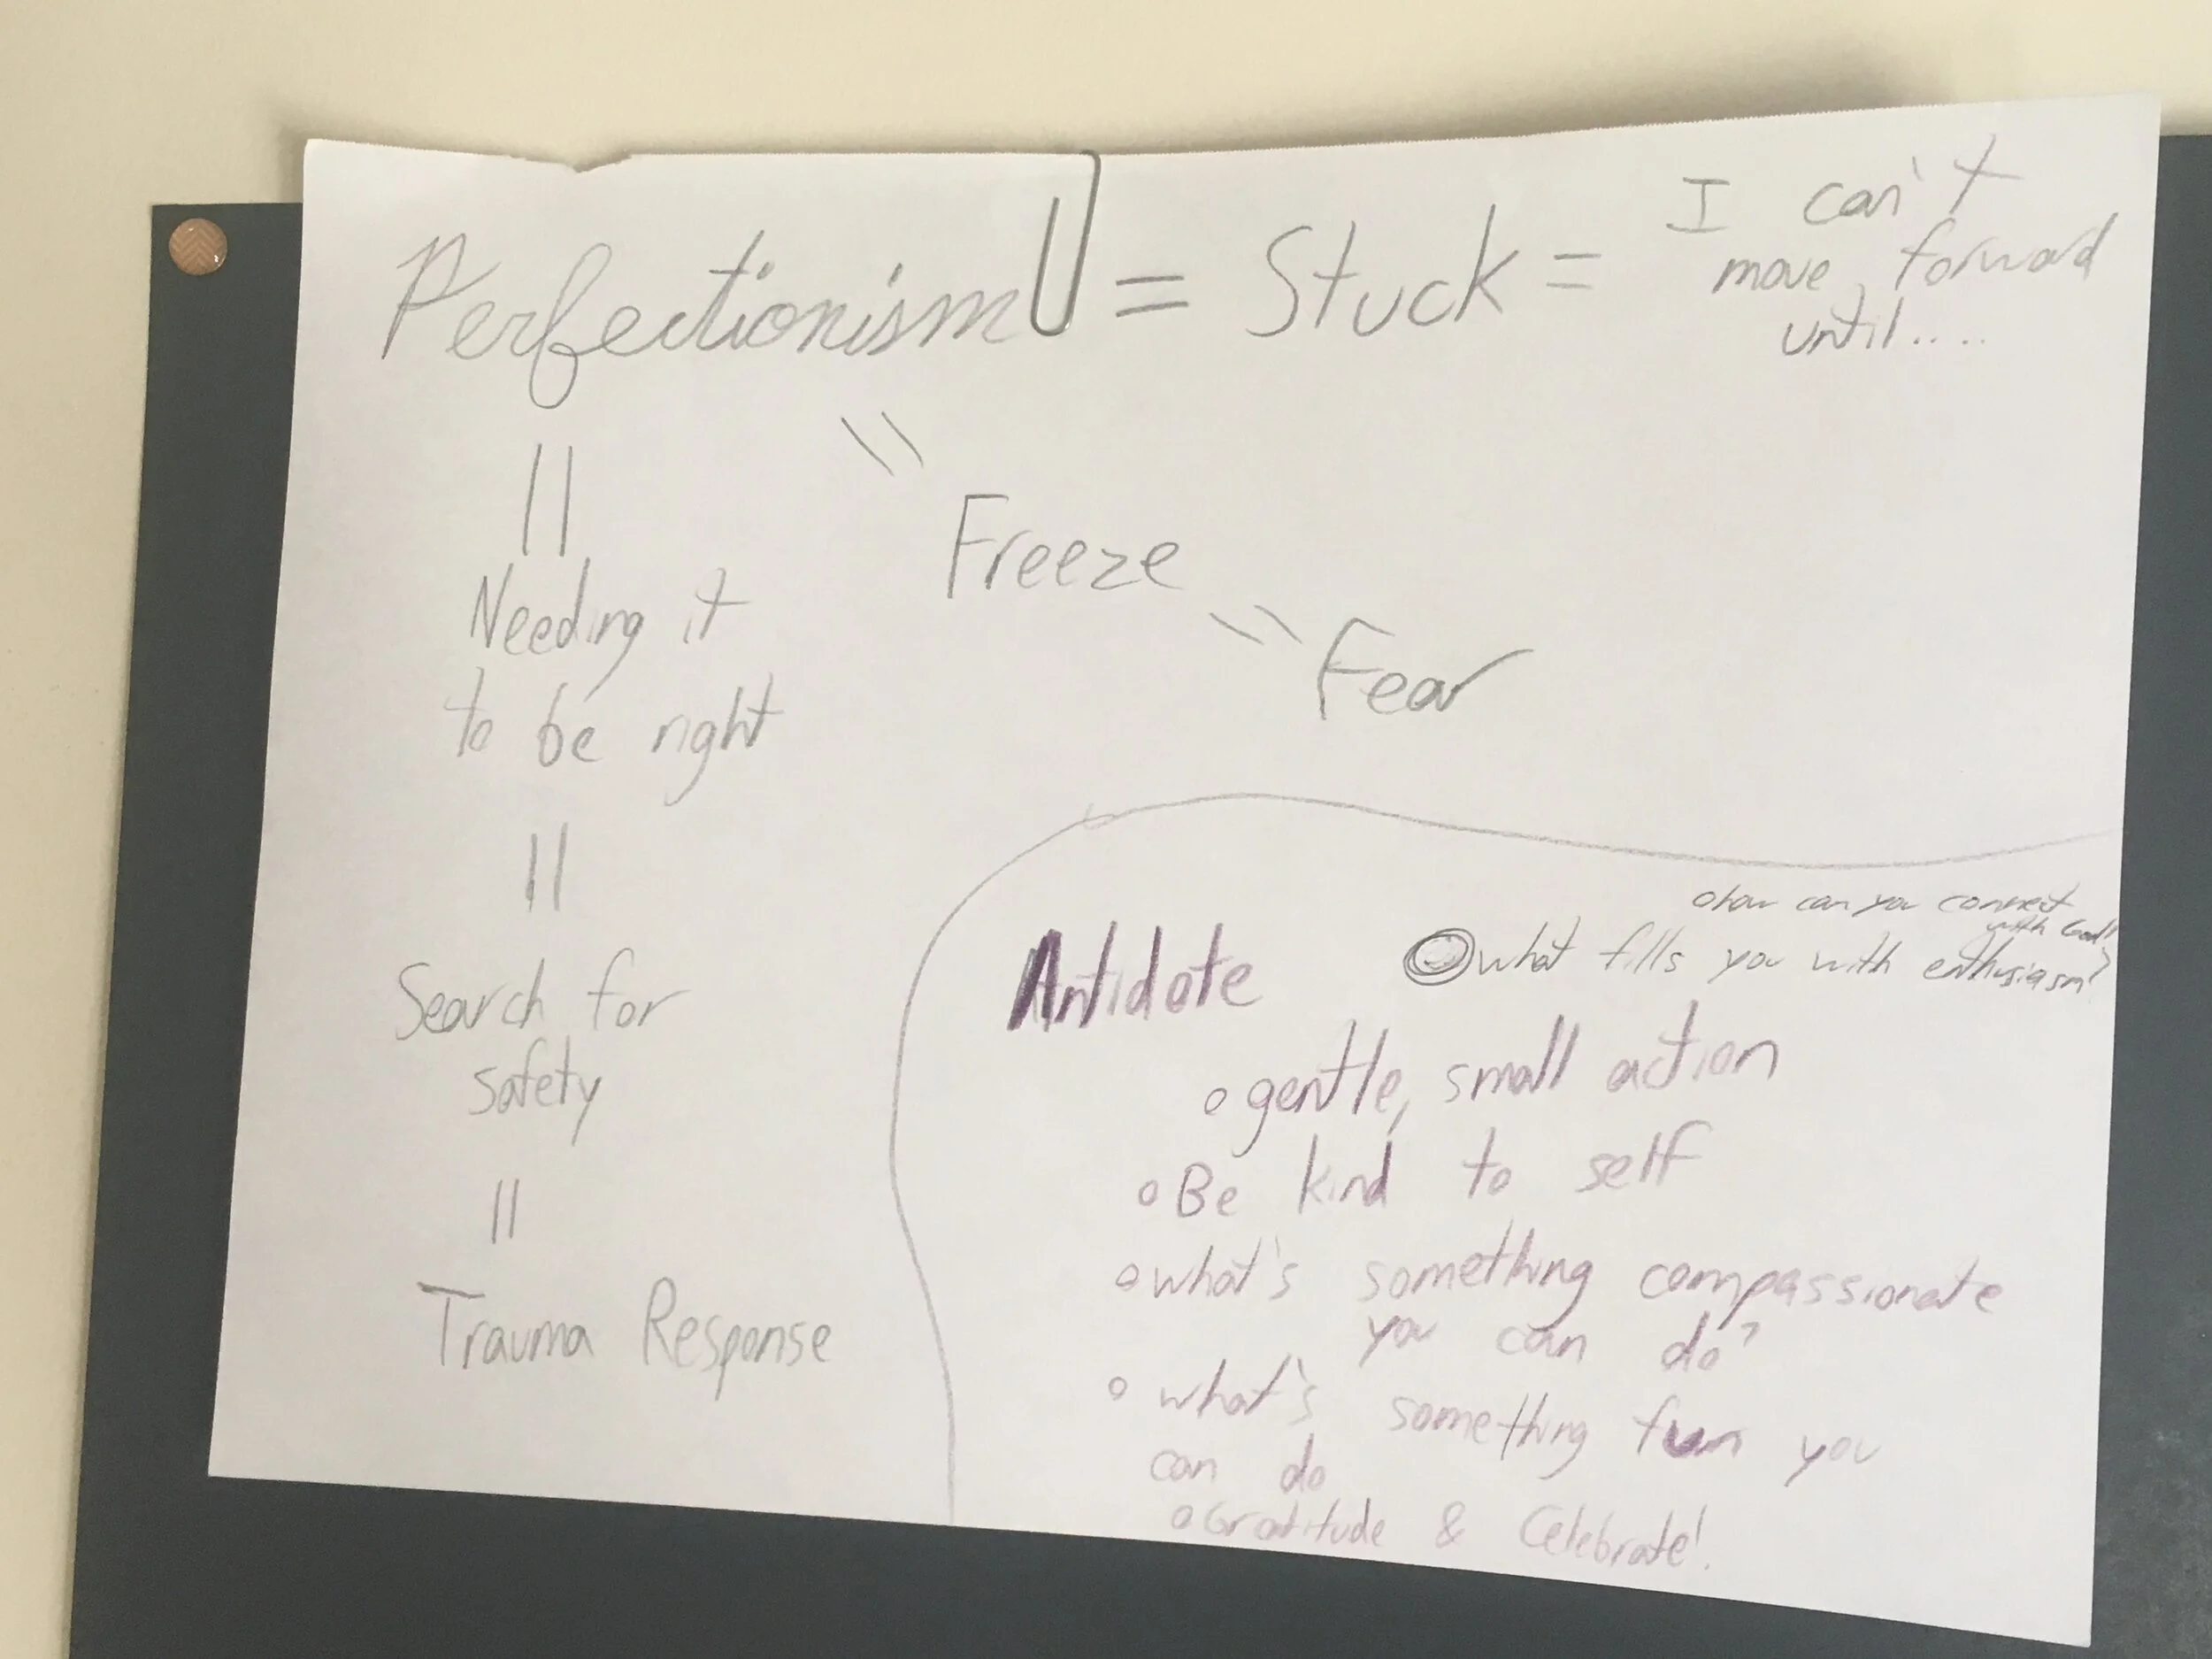 Perfectionism = Stuck = I can't
move forward
until....
||
\\
Freeze
\\
Fear
Needing it
to be right
||
Search for
safety
||
Trauma Response
o how can you connect
with God?
Antidote
what fills you with enthusiasm?
o gentle, small action
o Be kind to self
o what's something compassionate
you can do?
o what's something fun you
can do
o Gratitude & Celebrate!